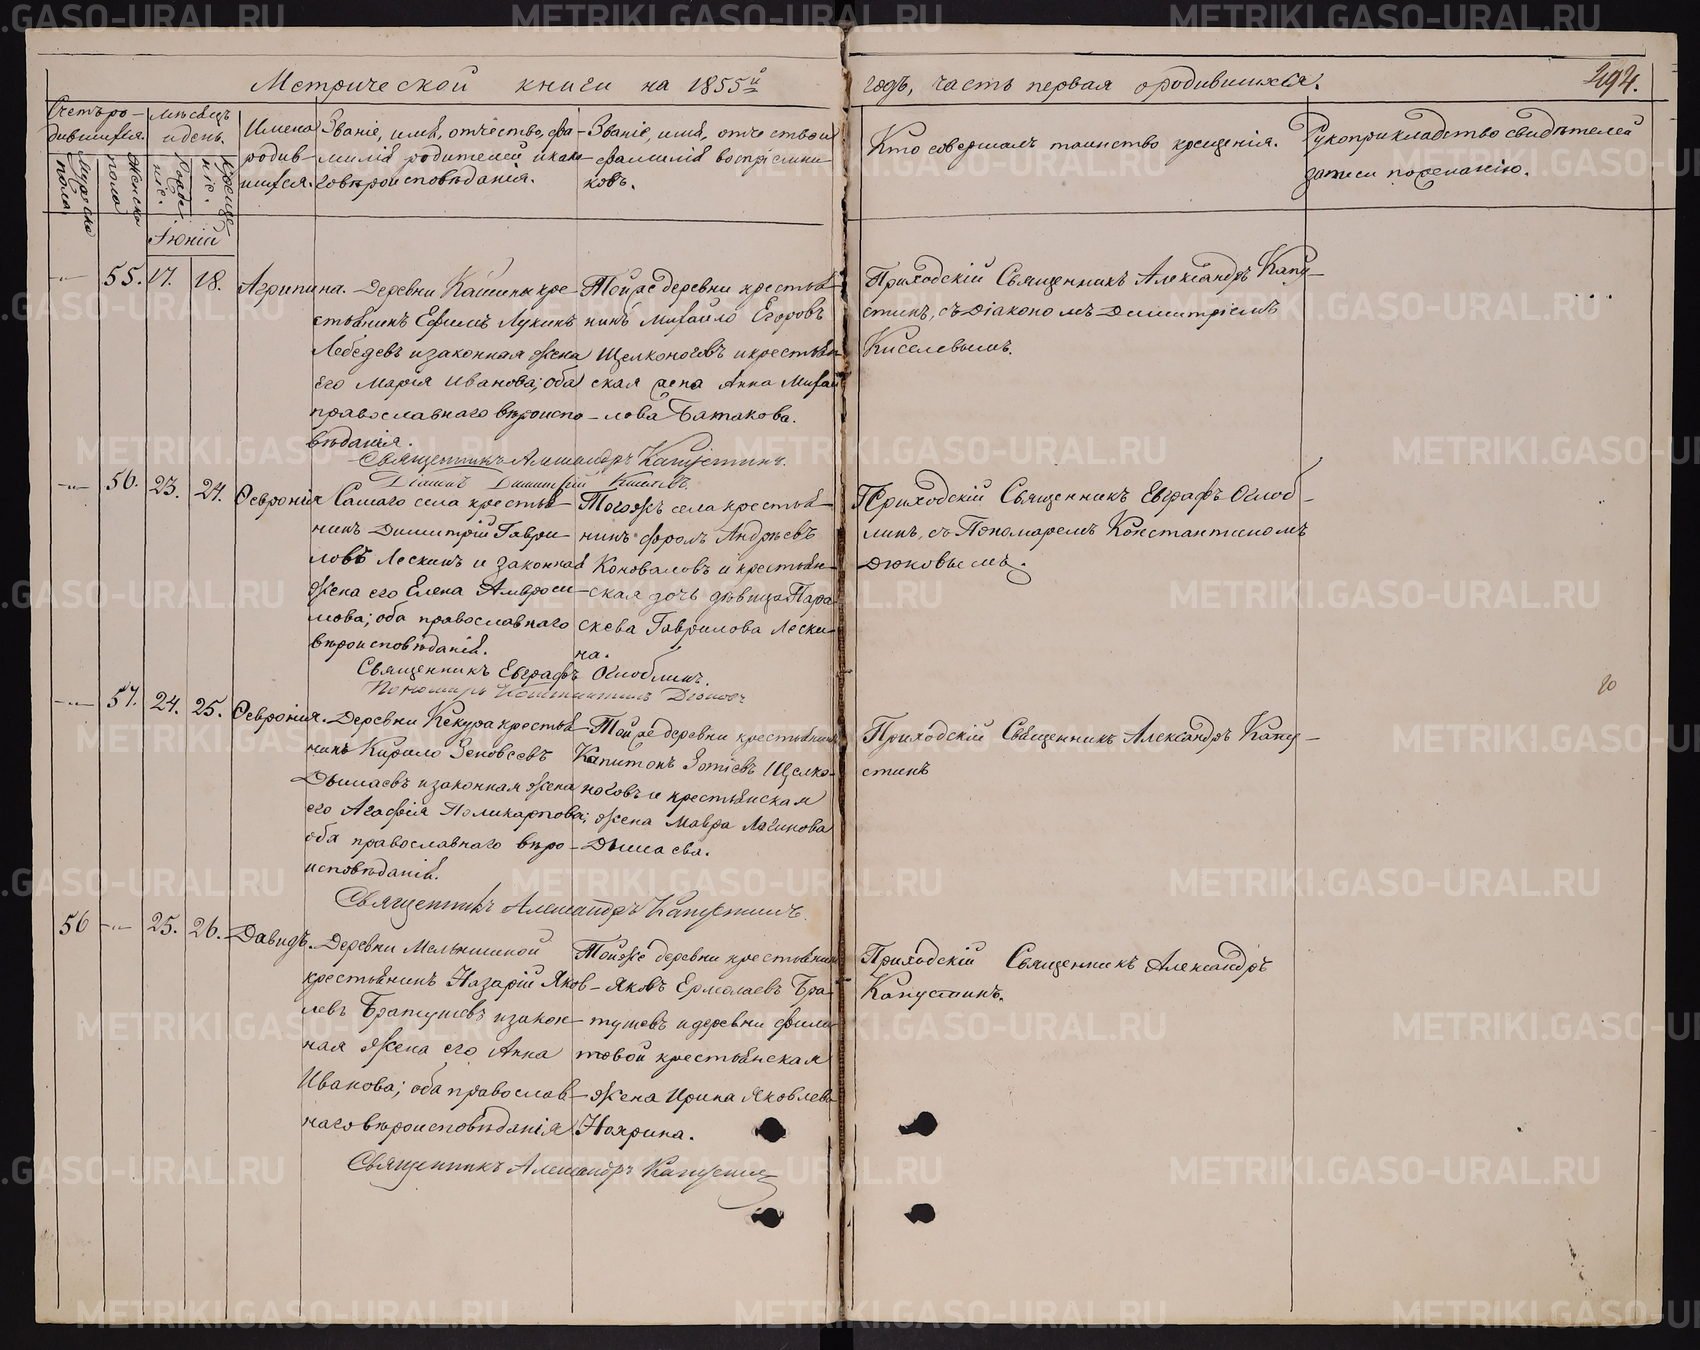 Метрической книги на 1855й годъ, часть первая о родившихся.
494.
Счетъ ро-
дившихся.
Мужеска пола
Женска пола
мѣсяцъ
и день.
Рожде-
ніе.
Креще-
ніе.
Имена
родив-
шихся.
Званіе, имя, отчество, фа-
милія родителей и како-
го вѣроисповѣданія.
Званіе, имя, отчество и
фамилія воспріемни-
ковъ.
Кто совершалъ таинство крещенія.
Рукоприкладство свидѣтелей
записи по желанію.
Іюній
55. 17. 18. Агрипина.
Деревни Кашины кре-
стьянинъ Ефимъ Лукинъ
Лебедевъ и законная жена
его Марія Иванова; оба
православнаго вѣроиспо-
вѣданія.
Тойже деревни крестья-
нинъ Михайло Егоровъ
Щелконоговъ и крестьян-
ская жена Анна Михай-
лова Батакова.
Приходскій Священникъ Александръ Капу-
стинъ, съ Діакономъ Димитріемъ
Киселевымъ.
Священникъ Александръ Капустинъ.
Діаконъ Димитрій Киселевъ.
56. 23. 24. Февронія
Самаго села крестья-
нинъ Димитрій Гаври-
ловъ Лескинъ и законная
жена его Елена Амвроси-
мова; оба православнаго
вѣроисповѣданія.
Тогожъ села крестья-
нинъ Фролъ Андреевъ
Коноваловъ и крестьян-
ская дочь дѣвица Пара-
скева Гаврилова Лески-
на.
Приходскій Священникъ Евграфъ Оглоб-
линъ, съ Пономаремъ Константиномъ
Дюковымъ.
Священникъ Евграфъ Оглоблинъ.
Пономарь Константинъ Дюковъ
57. 24. 25. Феврония.
Деревни Кекура крестья-
нинъ Кирило Зеновеевъ
Дымшаевъ и законная жена
его Агафія Поликарпова;
оба православнаго вѣро-
исповѣданія.
Тойже деревни крестьянинъ
Капитонъ Зотіевъ Щелко-
ноговъ и крестьянская
жена Мавра Логинова
Приходскій Священникъ Александръ Капу-
стинъ
Священникъ Александръ Капустинъ.
56 25. 26. Давидъ.
Деревни Мельнишной
крестьянинъ Назарій Яков-
левъ Братушевъ и закон-
ная жена его Анна
Иванова; оба православ-
наго вѣроисповѣданія
Тойже деревни крестьянинъ
Яковъ Ермолаевъ Бра-
тушевъ и деревни Фили-
товой крестьянская
жена Ирина Яковлева
Нохрина.
Приходскій Священникъ Александръ
Капустинъ.
Священникъ Александръ Капустинъ
METRIKI.GASO-URAL.RU